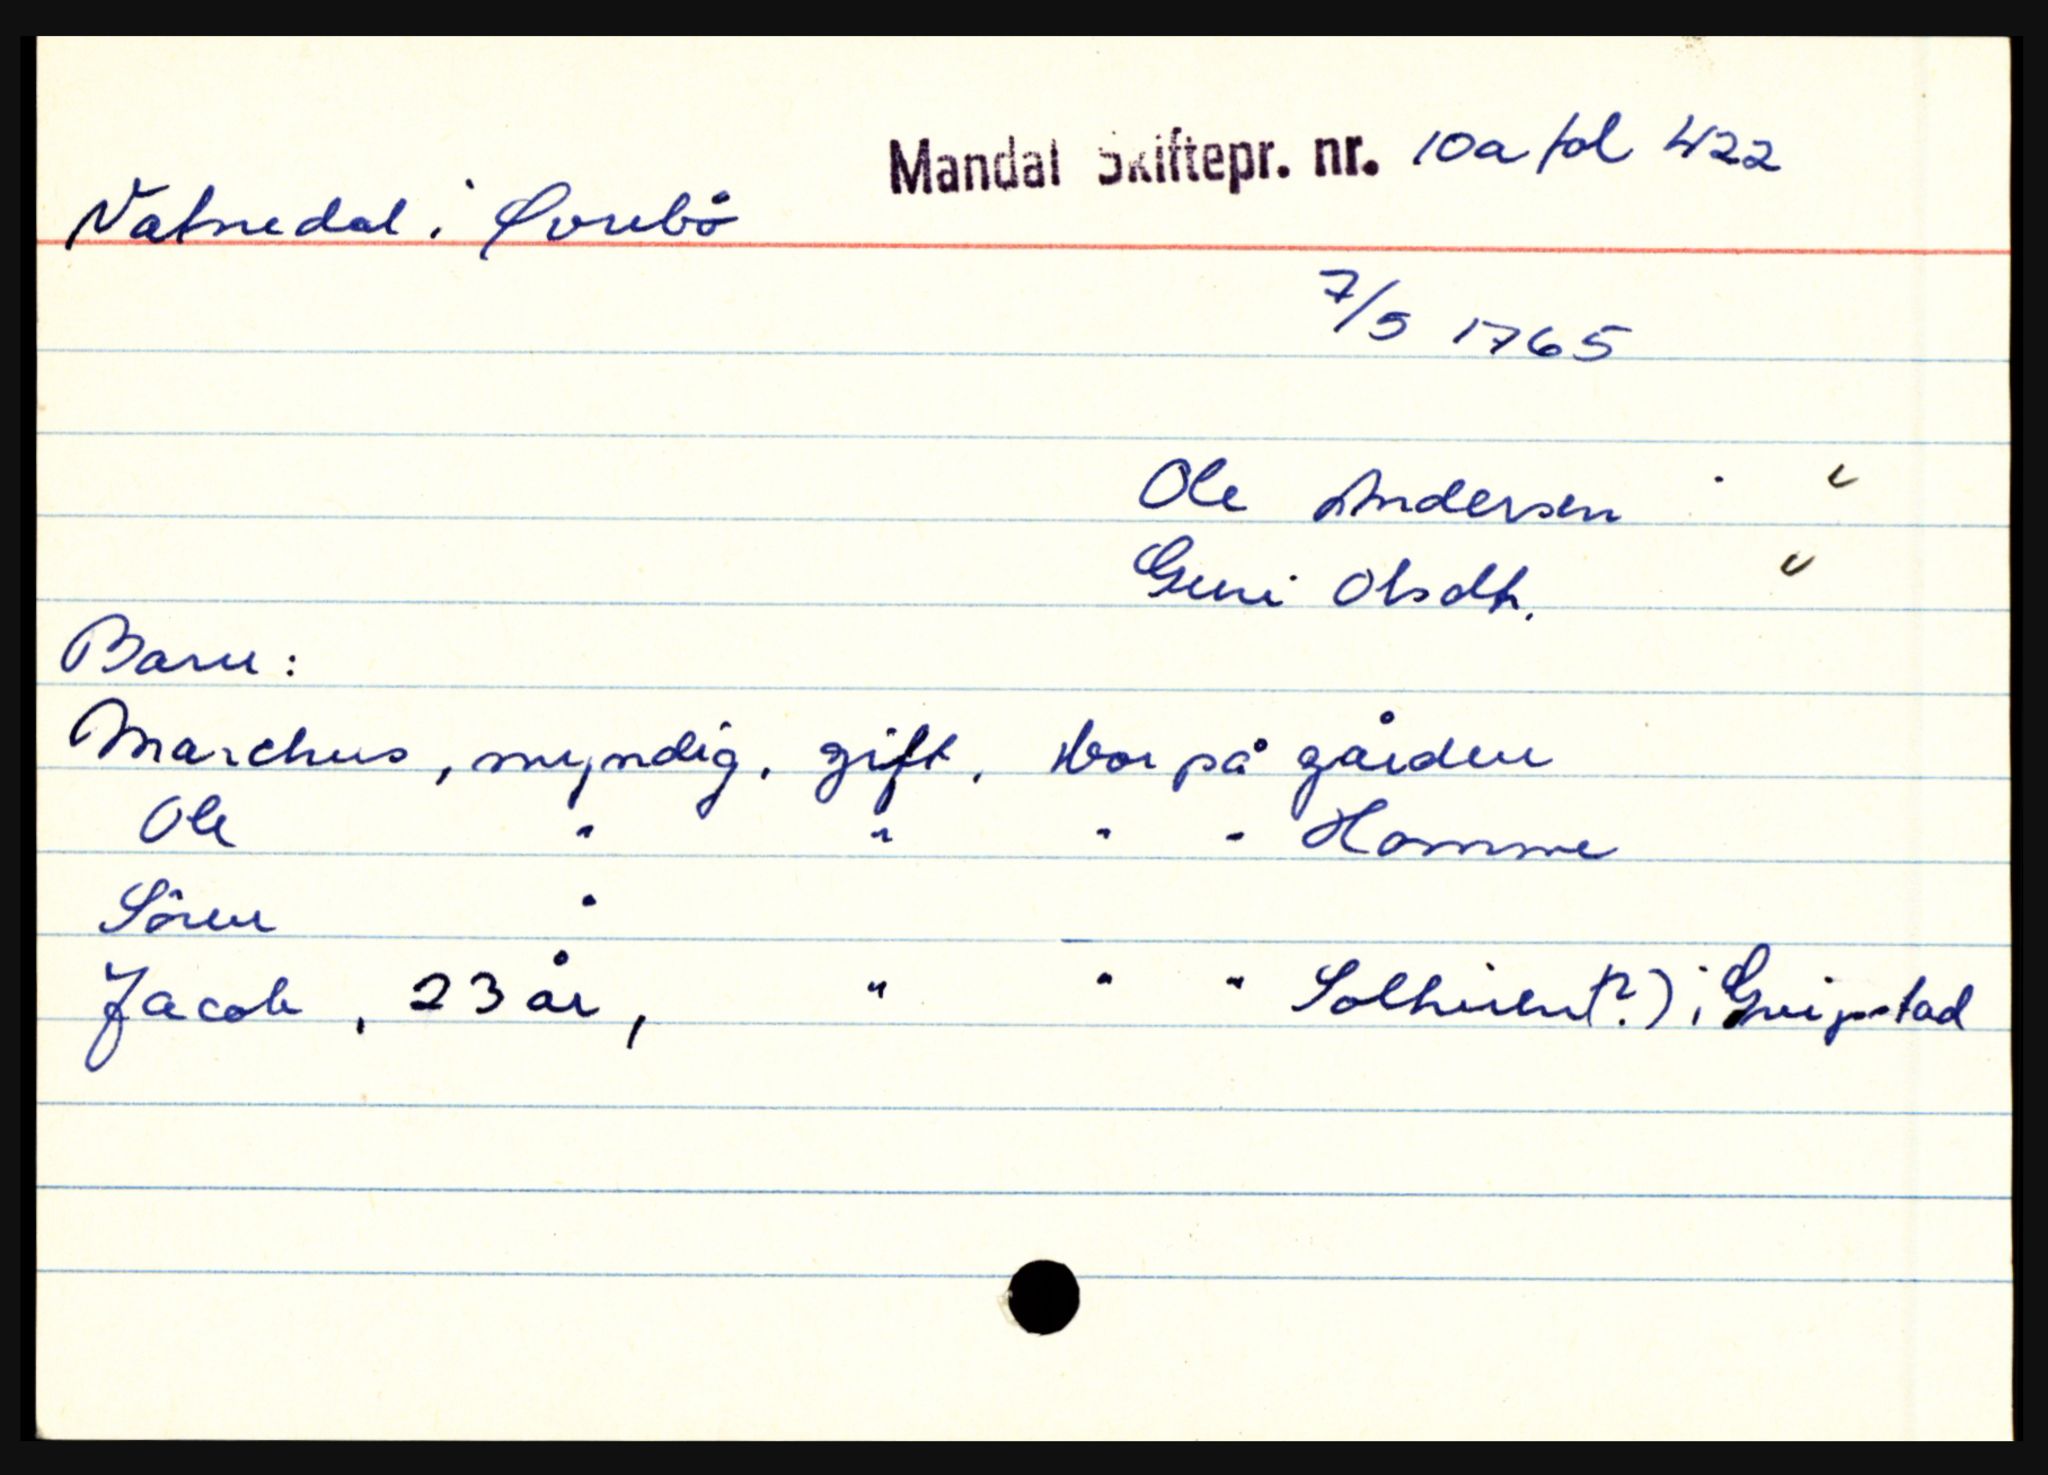 Mandal Skiftepr. nr. 10a fol 422
Vatnedal i Øvrebö
7/5 1765
Ole Andersen "
Guri Olsdt. "
Barn:
Marchus, myndig, gift, bor på gården
Ole " " " " Homme
Sören "
Jacob, 23 år, " " " Solhirem(?) i Greipstad